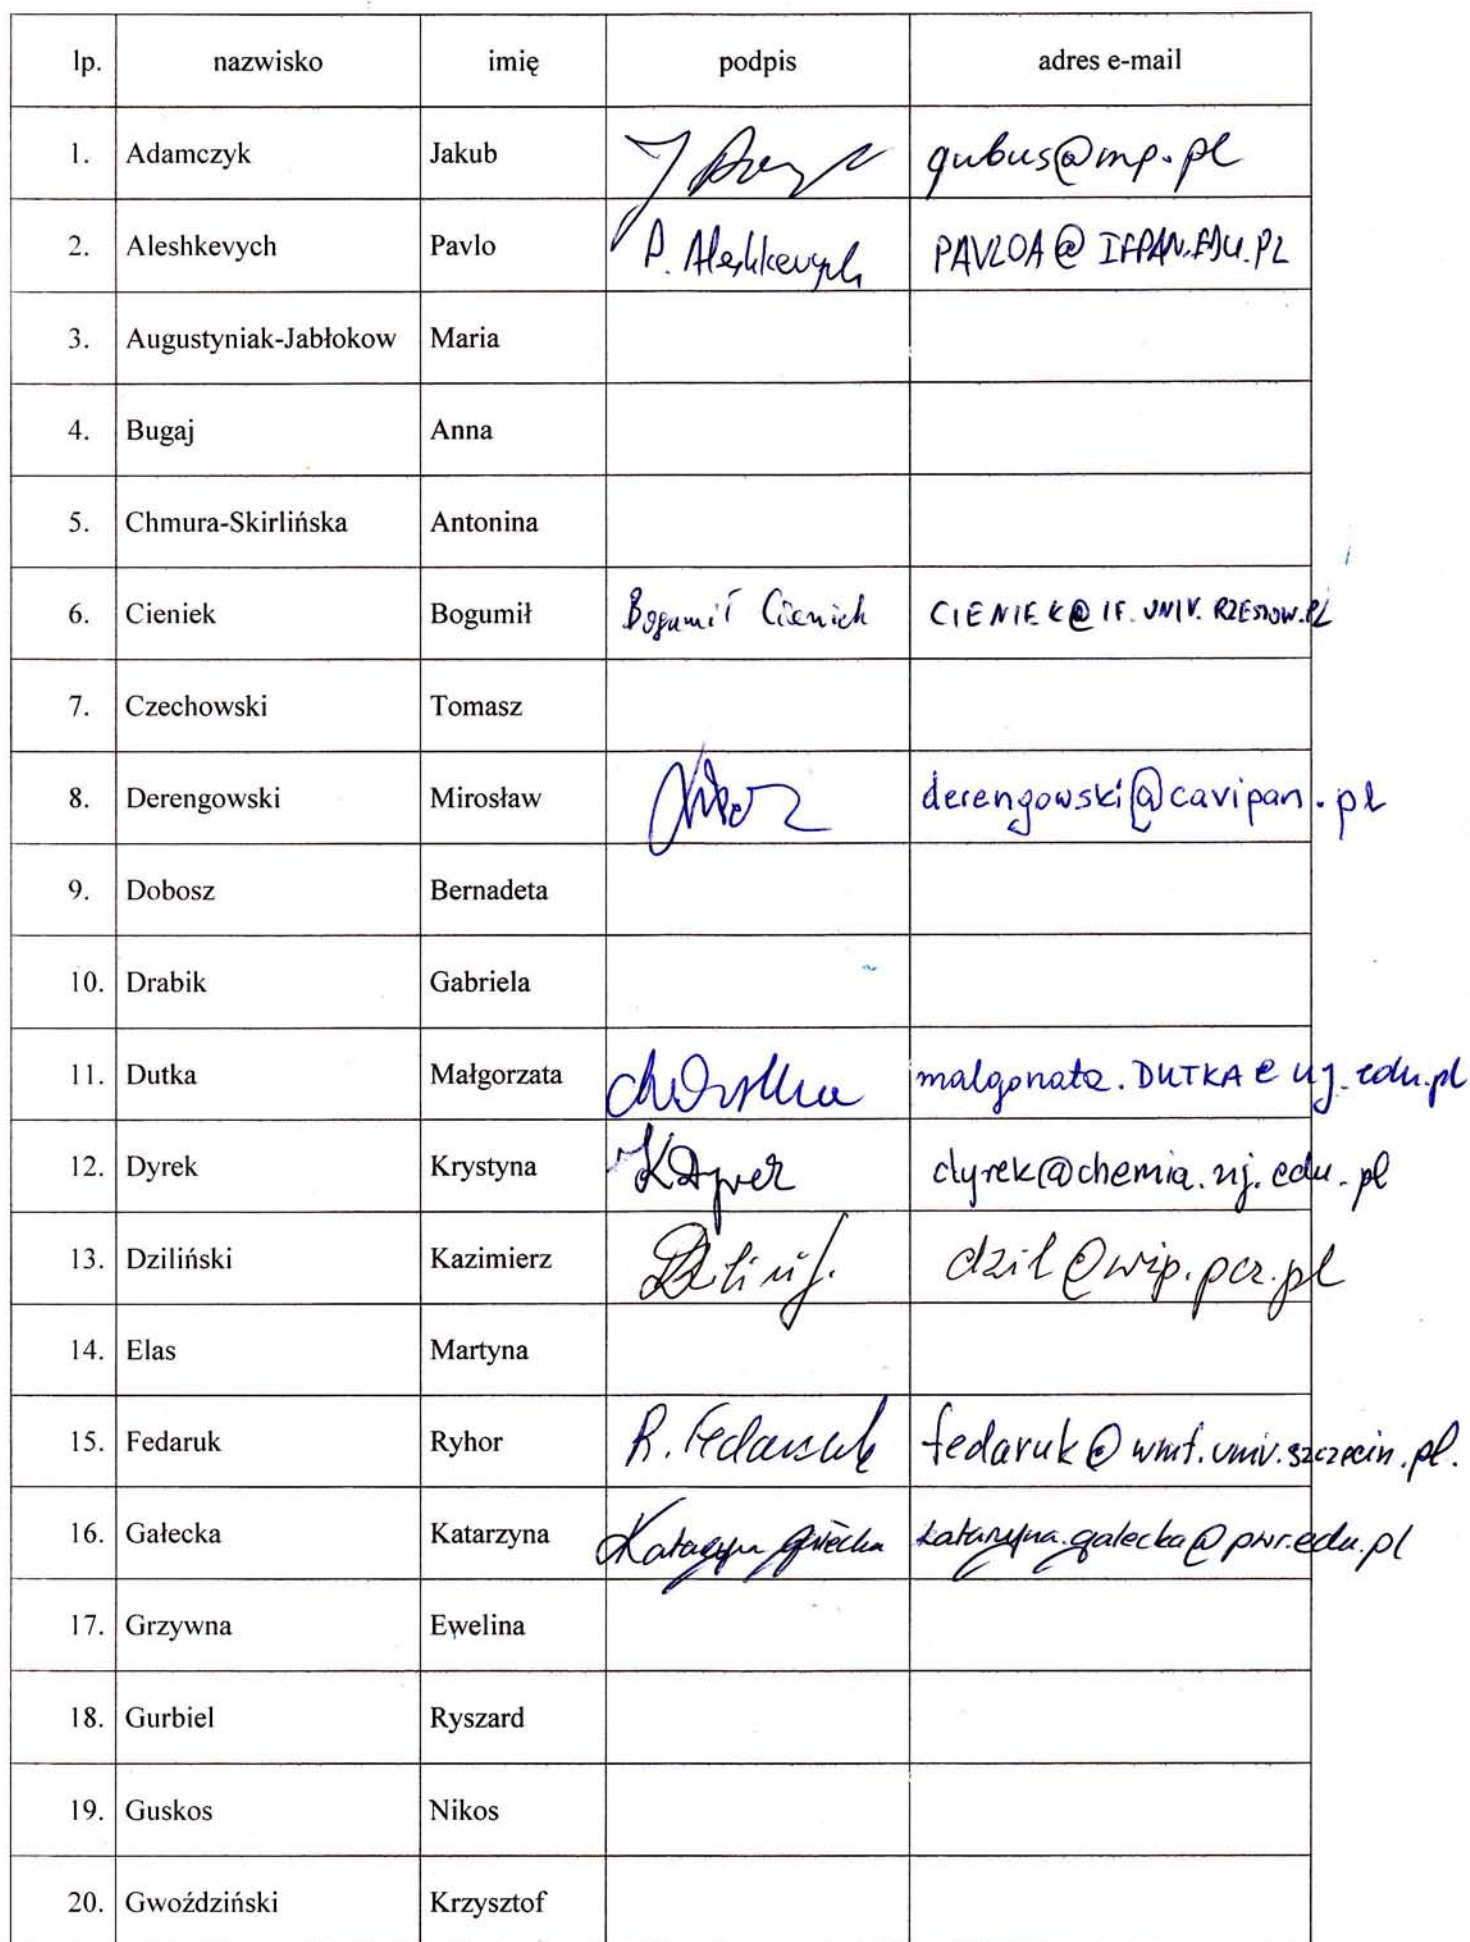 lp. nazwisko imię podpis adres e-mail
1. Adamczyk Jakub qubus@mp.pl
2. Aleshkevych Pavlo P. Aleshkevych PAVLOA@IFPAN.EDU.PL
3. Augustyniak-Jabłokow Maria
4. Bugaj Anna
5. Chmura-Skirlińska Antonina
6. Cieniek Bogumił Bogumił Cieniek CIENIEK@IF.UNIV.RZESZOW.PL
7. Czechowski Tomasz
8. Derengowski Mirosław derengowski@cavipan.pl
9. Dobosz Bernadeta
10. Drabik Gabriela
11. Dutka Małgorzata malgorzata.DUTKA@uj.edu.pl
12. Dyrek Krystyna KDyrek dyrek@chemia.uj.edu.pl
13. Dziliński Kazimierz dzil@wip.pcz.pl
14. Elas Martyna
15. Fedaruk Ryhor R. Fedaruk fedaruk@wmf.univ.szczecin.pl.
16. Gałecka Katarzyna Katarzyna Gałecka katarzyna.galecka@pwr.edu.pl
17. Grzywna Ewelina
18. Gurbiel Ryszard
19. Guskos Nikos
20. Gwoździński Krzysztof